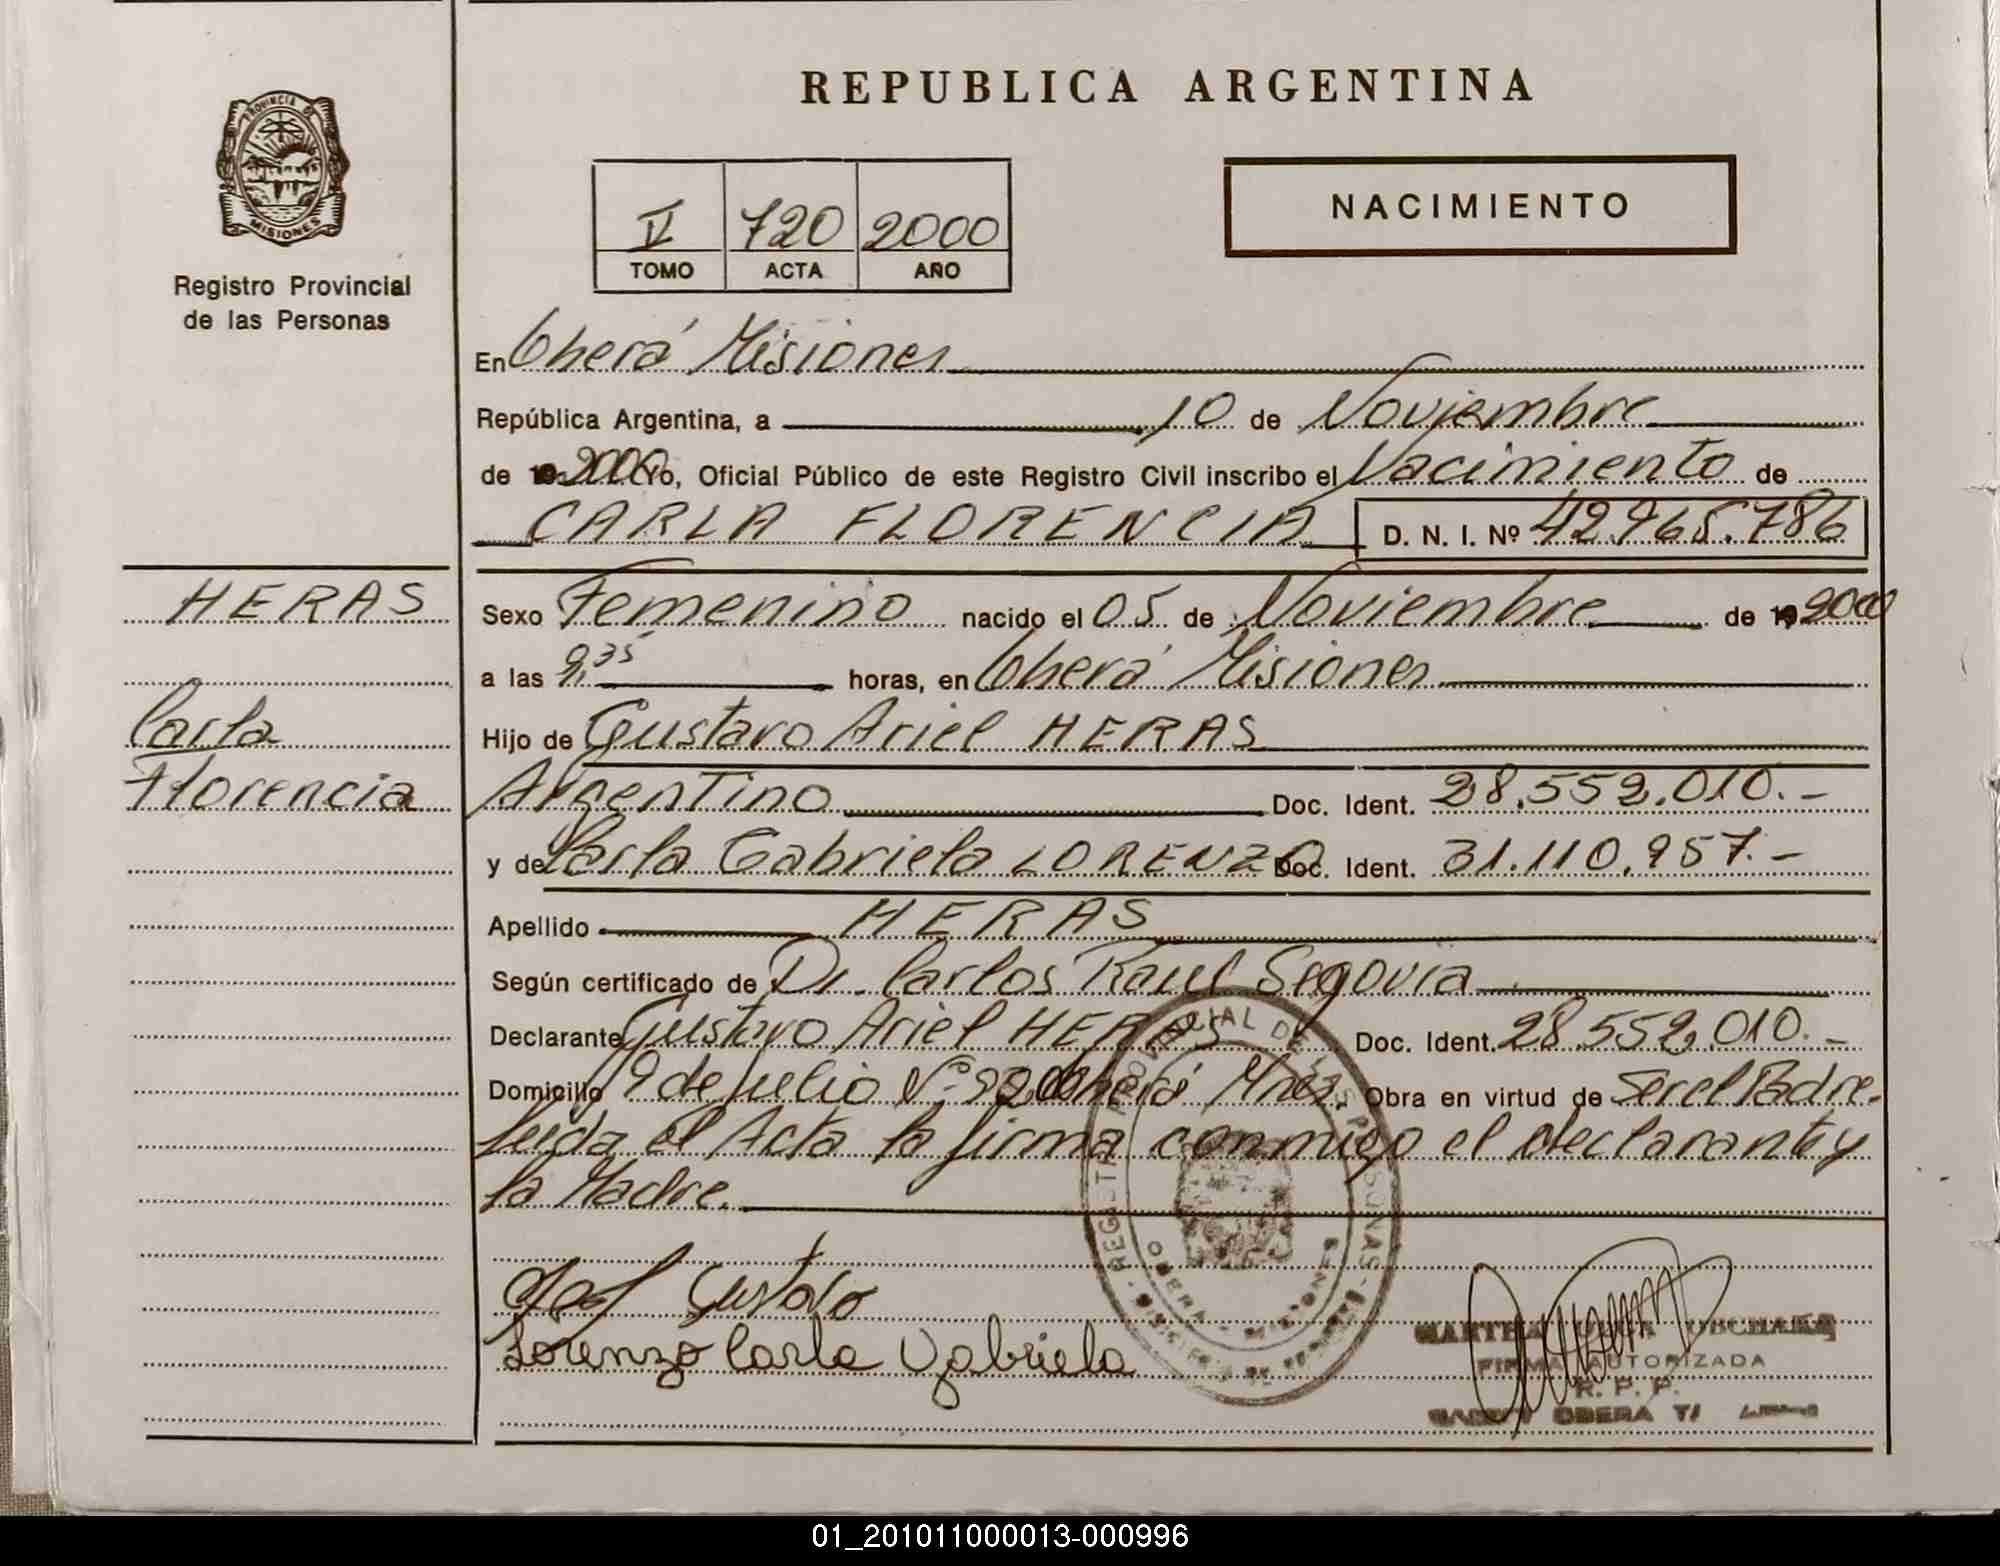 REPUBLICA ARGENTINA
PROVINCIA DE
MISIONES
Registro Provincial
de las Personas
V 720 2000
TOMO ACTA AÑO
NACIMIENTO
En Oberá Misiones
República Argentina, a 10 de Noviembre
de 19 2000 Yo, Oficial Público de este Registro Civil inscribo el Nacimiento de
CARLA FLORENCIA D. N. I. Nº 42.965.786
HERAS
Carla
Florencia
Sexo Femenino nacido el 05 de Noviembre de 19 2000
a las 9,35 horas, en Oberá Misiones
Hijo de Gustavo Ariel HERAS
Argentino Doc. Ident. 28.552.010.-
y de Carla Gabriela LORENZO Doc. Ident. 31.110.957.-
Apellido HERAS
Según certificado de Dr. Carlos Raul Segovia
Declarante Gustavo Ariel HERAS Doc. Ident. 28.552.010.-
Domicilio 9 de Julio Nº Oberá Mnes. Obra en virtud de Ser el Padre.
Leida el Acta la firma conmigo el declarante y
la Madre.
REGISTRO PROVINCIAL DE LAS PERSONAS
OBERA - MISIONES
Gustavo
Lorenzo Carla Gabriela
MARTHA
FIRMA AUTORIZADA
R. P. P.
OBERA
01_201011000013-000996